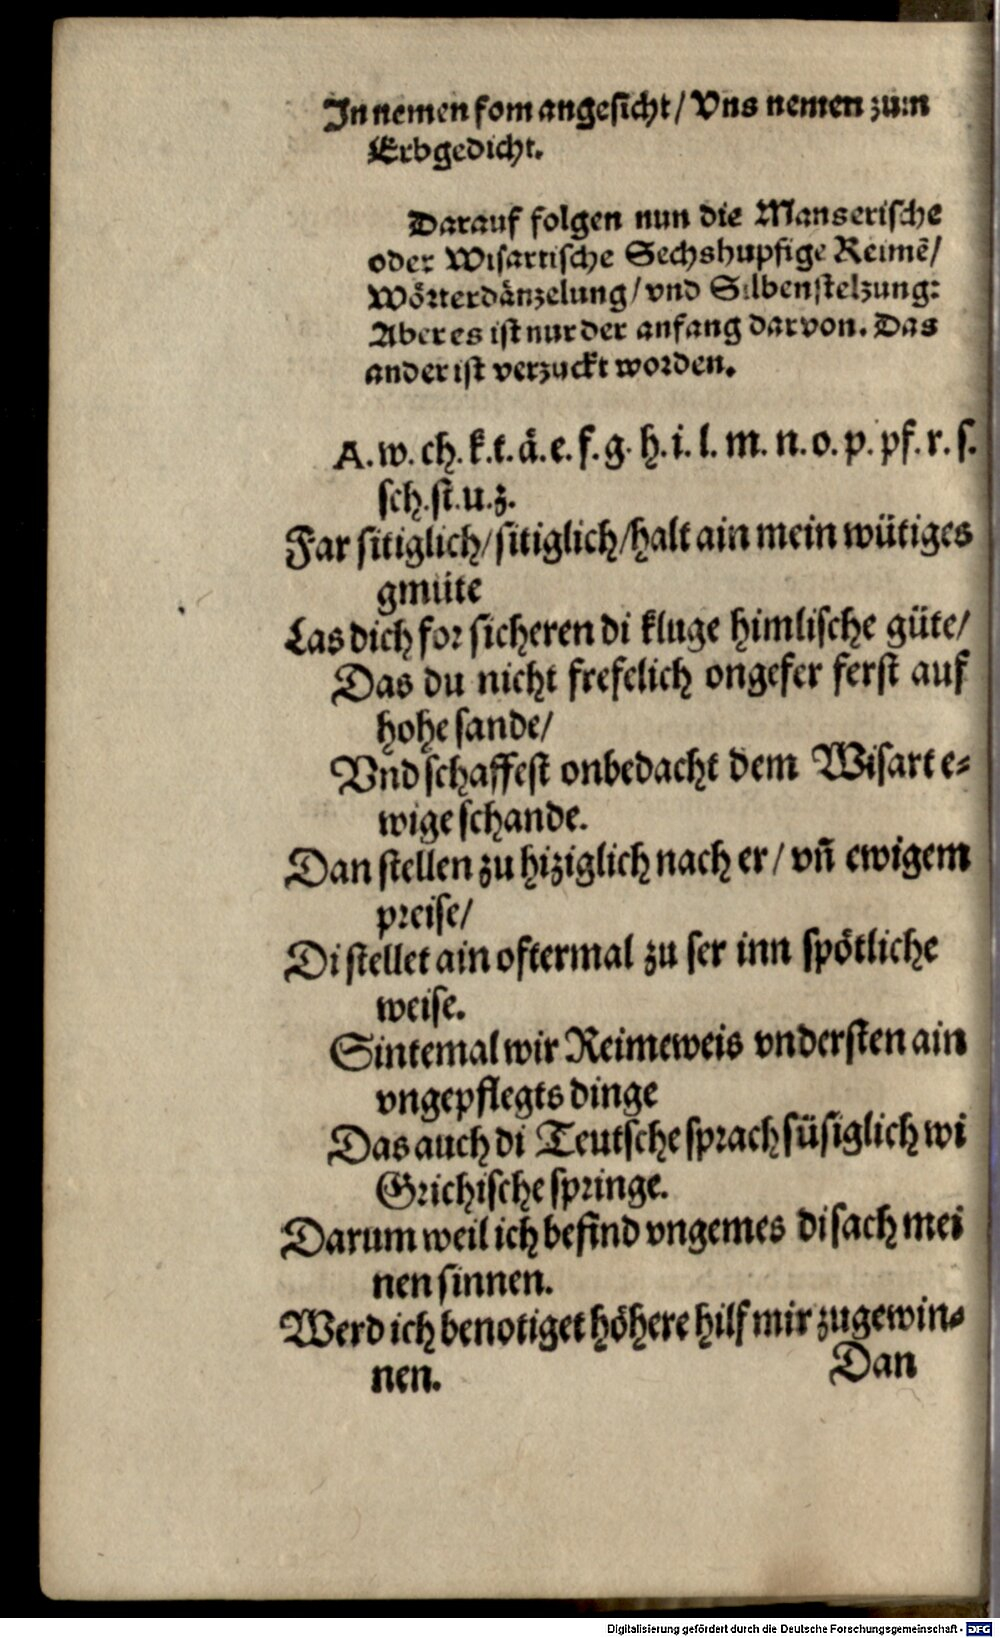 In nemen fom angesicht / Vns nemen zum
Erbgedicht.
Darauf folgen nun die Manserische
oder Wisartische Sechshupfige Reimẽ/
Wörterdänzelung / vnd Silbenstelzung:
Aber es ist nur der anfang darvon. Das
ander ist verzuckt worden.
A. w. ch. k. t. ä. e. f. g. h. i. l. m. n. o. p. pf. r. s.
sch. st. u. z.
Far sitiglich/ sitiglich/ halt ain mein wütiges
gmüte
Las dich for sicheren di kluge himlische güte/
Das du nicht frefelich ongefer ferst auf
hohe sande/
Vnd schaffest onbedacht dem Wisart e⸗
wige schande.
Dan stellen zu hiziglich nach er / vñ ewigem
preise/
Di stellet ain oftermal zu ser inn spötliche
weise.
Sintemal wir Reimeweis vndersten ain
vngepflegts dinge
Das auch di Teutsche sprach süsiglich wi
Grichische springe.
Darum weil ich befind vngemes di sach mei
nen sinnen.
Werd ich benotiget höhere hilf mir zugewin⸗
nen.
Dan
Digitalisierung gefördert durch die Deutsche Forschungsgemeinschaft - DFG